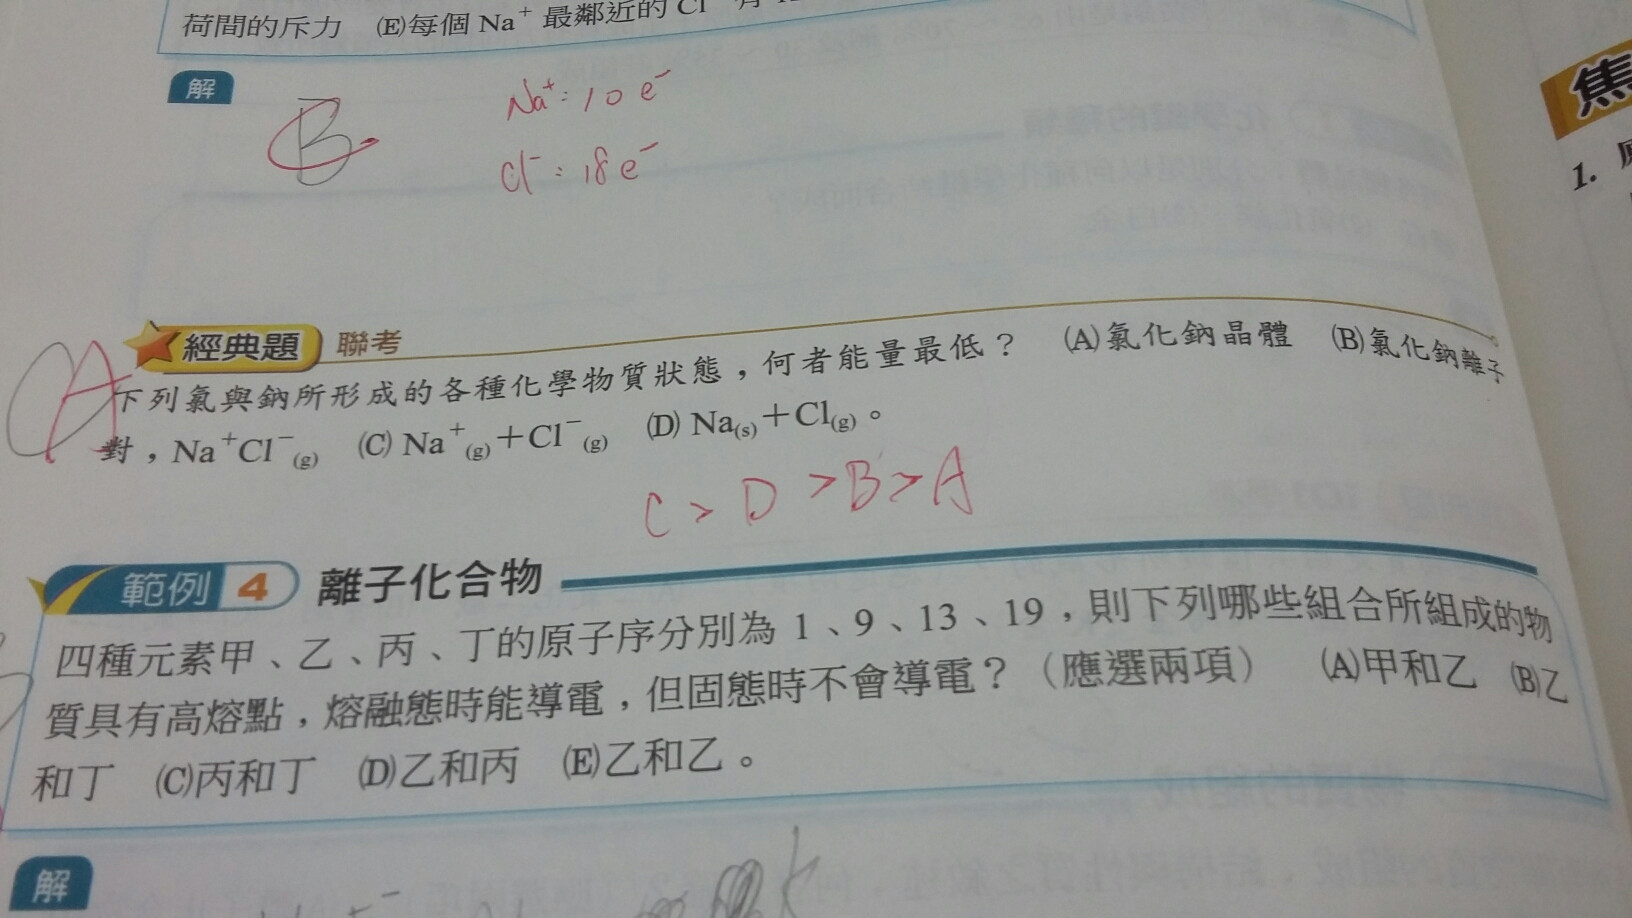 荷間的斥力 (E)每個 Na⁺ 最鄰近的 Cl⁻ 有
解
B
Na⁺: 10 e⁻
Cl⁻: 18 e⁻
焦
1.
經典題 聯考
A
下列氯與鈉所形成的各種化學物質狀態，何者能量最低？ (A)氯化鈉晶體 (B)氯化鈉離子
對，Na⁺Cl⁻(g) (C) Na⁺(g)＋Cl⁻(g) (D) Na(s)＋Cl(g)。
C > D > B > A
範例 4 離子化合物
四種元素甲、乙、丙、丁的原子序分別為 1、9、13、19，則下列哪些組合所組成的物
質具有高熔點，熔融態時能導電，但固態時不會導電？（應選兩項） (A)甲和乙 (B)乙
和丁 (C)丙和丁 (D)乙和丙 (E)乙和乙。
解